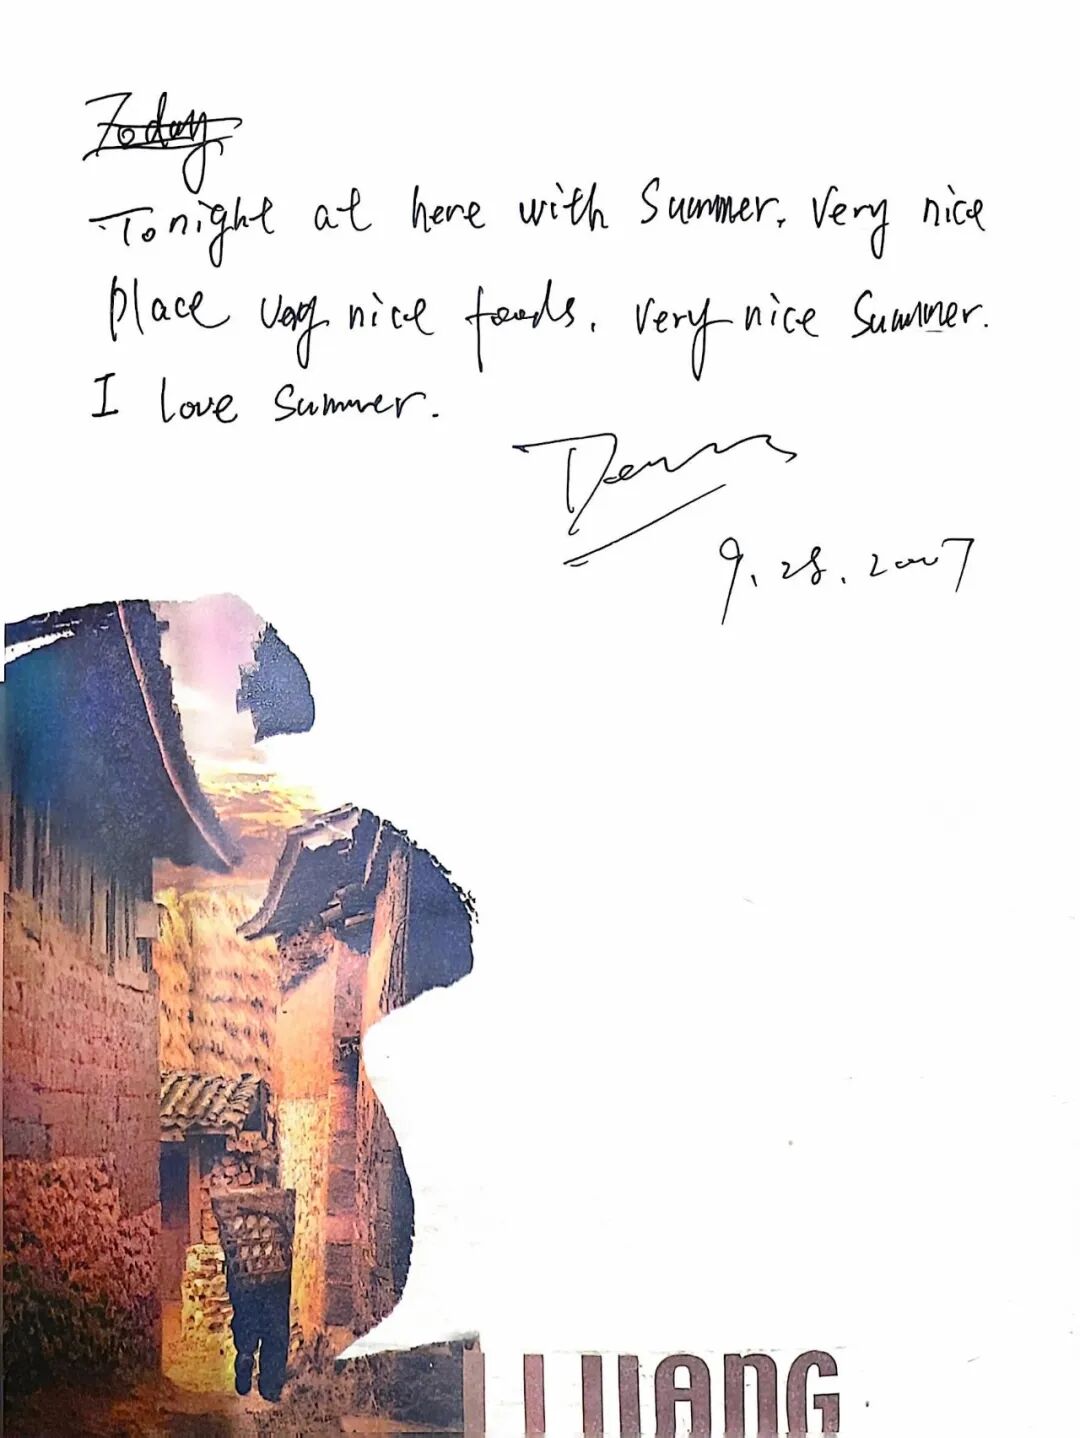 Today
Tonight at here with Summer, Very nice
place very nice foods. very nice Summer.
I love Summer.
9.28.2007
LIJIANG